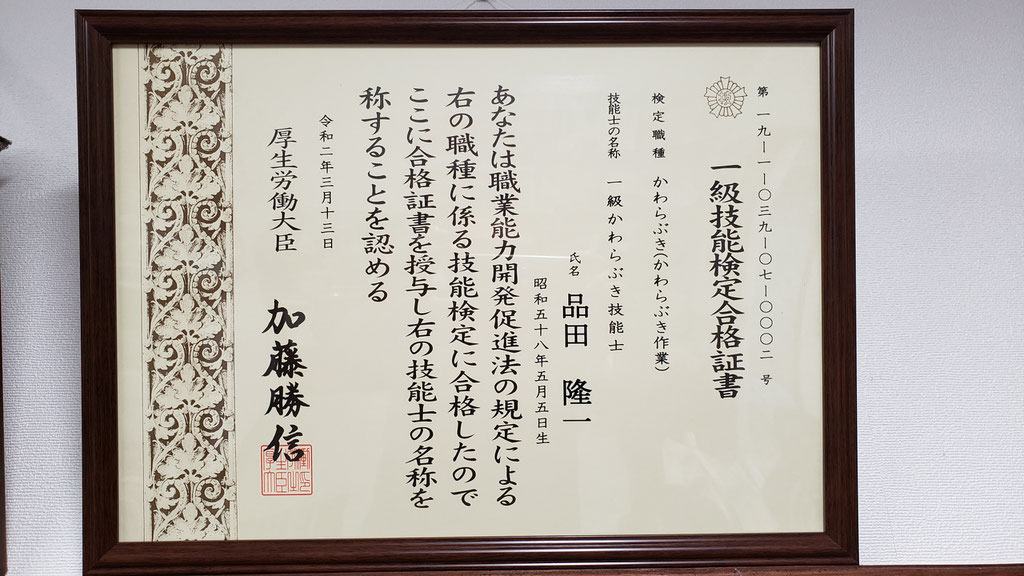 第一九―一―〇三九―〇七―〇〇〇二号
一級技能検定合格証書
検定職種 かわらぶき(かわらぶき作業)
技能士の名称 一級かわらぶき技能士
氏名 品田 隆一
昭和五十八年五月五日生
あなたは職業能力開発促進法の規定による
右の職種に係る技能検定に合格したので
ここに合格証書を授与し右の技能士の名称を
称することを認める
令和二年三月十三日
厚生労働大臣 加藤勝信